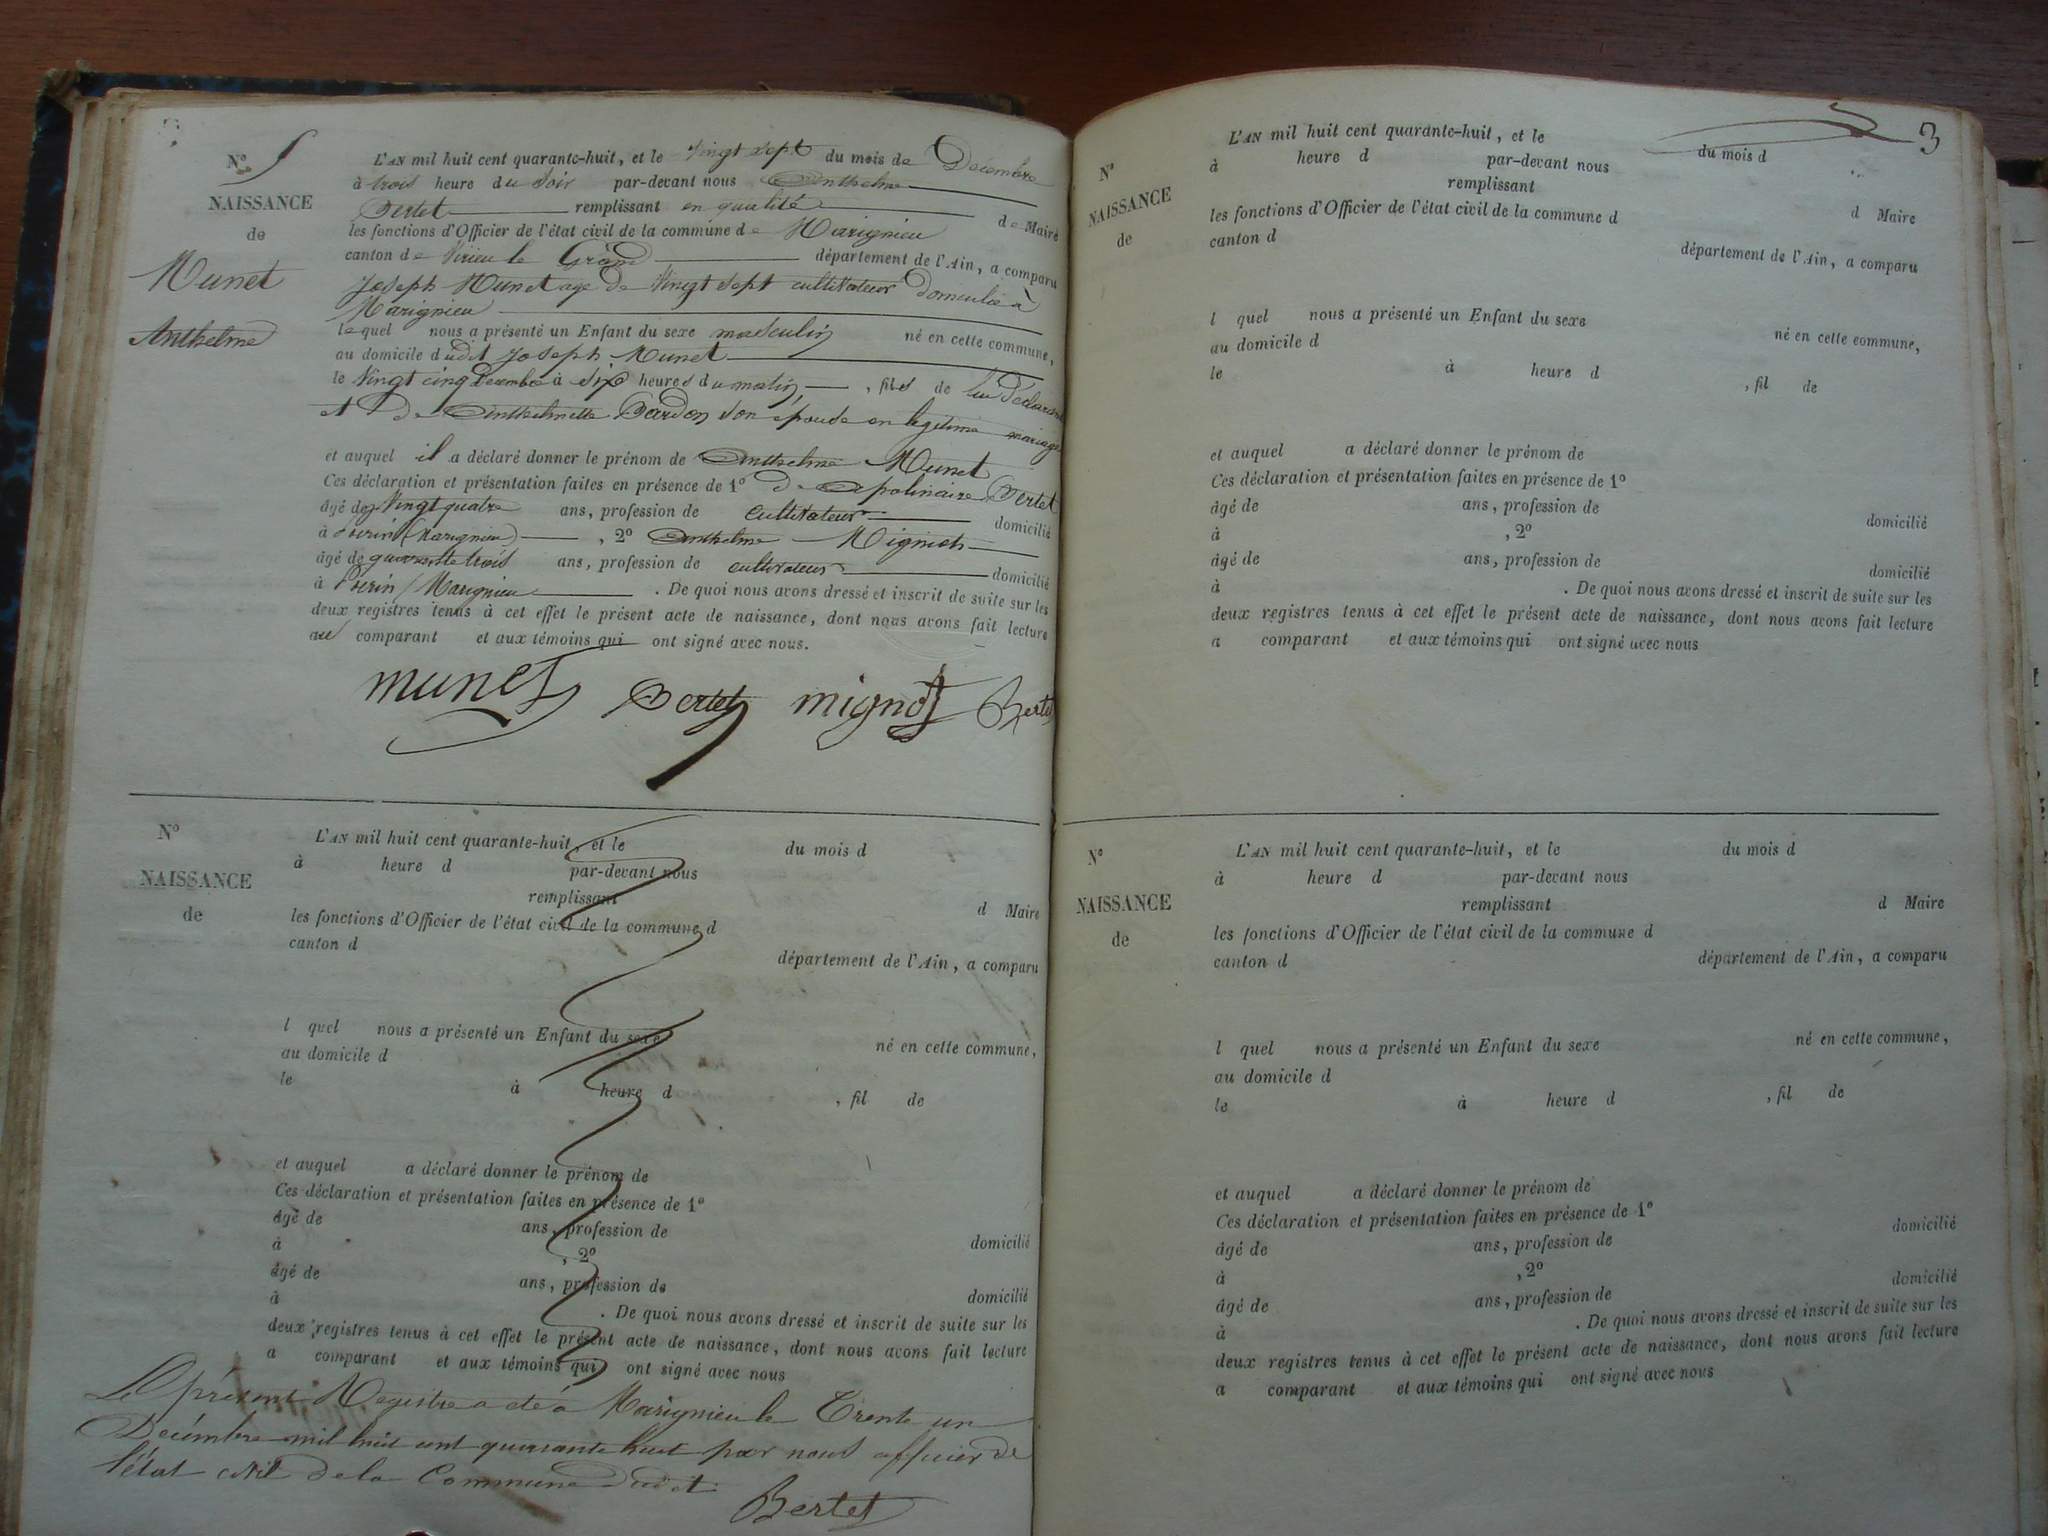 N.o 5
NAISSANCE
de
Munet
Anthelme
L'AN mil huit cent quarante-huit, et le Vingt sept du mois de Décembre
à trois heure du Soir par-devant nous Anthelme
Bertet remplissant en qualité de Maire
les fonctions d'Officier de l'état civil de la commune de Marignieu
canton de Virieu le Grand département de l'Ain, a comparu
Joseph Munet agé de Vingt Sept cultivateur domicilié à
Marignieu
le quel nous a présenté un Enfant du sexe masculin né en cette commune,
au domicile dudit Joseph Munet
le Vingt cinq Décembre à Six heures du matin, fils de lui déclarant
et de Anthelmette Bardon Son épouse en légitime mariage
et auquel il a déclaré donner le prénom de Anthelme Munet
Ces déclaration et présentation faites en présence de 1º de Apolinaire Bertet
âgé de Vingt quatre ans, profession de Cultivateur domicilié
à (Marignieu), 2º Anthelme Mignot
âgé de quarante trois ans, profession de cultivateur domicilié
à / Marignieu. De quoi nous avons dressé et inscrit de suite sur les
deux registres tenus à cet effet le présent acte de naissance, dont nous avons fait lecture
au comparant et aux témoins qui ont signé avec nous.
munet Bertet mignot Bertet
N.o
NAISSANCE
de
L'AN mil huit cent quarante-huit, et le du mois d
à heure d par-devant nous
remplissant d Maire
les fonctions d'Officier de l'état civil de la commune d
canton d département de l'Ain, a comparu
l quel nous a présenté un Enfant du sexe né en cette commune,
au domicile d
le à heure d , fil de
et auquel a déclaré donner le prénom de
Ces déclaration et présentation faites en présence de 1º
âgé de ans, profession de domicilié
à , 2º
âgé de ans, profession de domicilié
à . De quoi nous avons dressé et inscrit de suite sur les
deux registres tenus à cet effet le présent acte de naissance, dont nous avons fait lecture
a comparant et aux témoins qui ont signé avec nous
Le présent Registre a été à Marignieu le Trente un
Décembre mil huit cent quarante huit par nous officier de
l'état civil de la Commune dudit.
Bertet
3
N.o
NAISSANCE
de
L'AN mil huit cent quarante-huit, et le du mois d
à heure d par-devant nous
remplissant d Maire
les fonctions d'Officier de l'état civil de la commune d
canton d département de l'Ain, a comparu
l quel nous a présenté un Enfant du sexe né en cette commune,
au domicile d
le à heure d , fil de
et auquel a déclaré donner le prénom de
Ces déclaration et présentation faites en présence de 1º
âgé de ans, profession de domicilié
à , 2º
âgé de ans, profession de domicilié
à . De quoi nous avons dressé et inscrit de suite sur les
deux registres tenus à cet effet le présent acte de naissance, dont nous avons fait lecture
a comparant et aux témoins qui ont signé avec nous
N.o
NAISSANCE
de
L'AN mil huit cent quarante-huit, et le du mois d
à heure d par-devant nous
remplissant d Maire
les fonctions d'Officier de l'état civil de la commune d
canton d département de l'Ain, a comparu
l quel nous a présenté un Enfant du sexe né en cette commune,
au domicile d
le à heure d , fil de
et auquel a déclaré donner le prénom de
Ces déclaration et présentation faites en présence de 1º
âgé de ans, profession de domicilié
à , 2º
âgé de ans, profession de domicilié
à . De quoi nous avons dressé et inscrit de suite sur les
deux registres tenus à cet effet le présent acte de naissance, dont nous avons fait lecture
a comparant et aux témoins qui ont signé avec nous